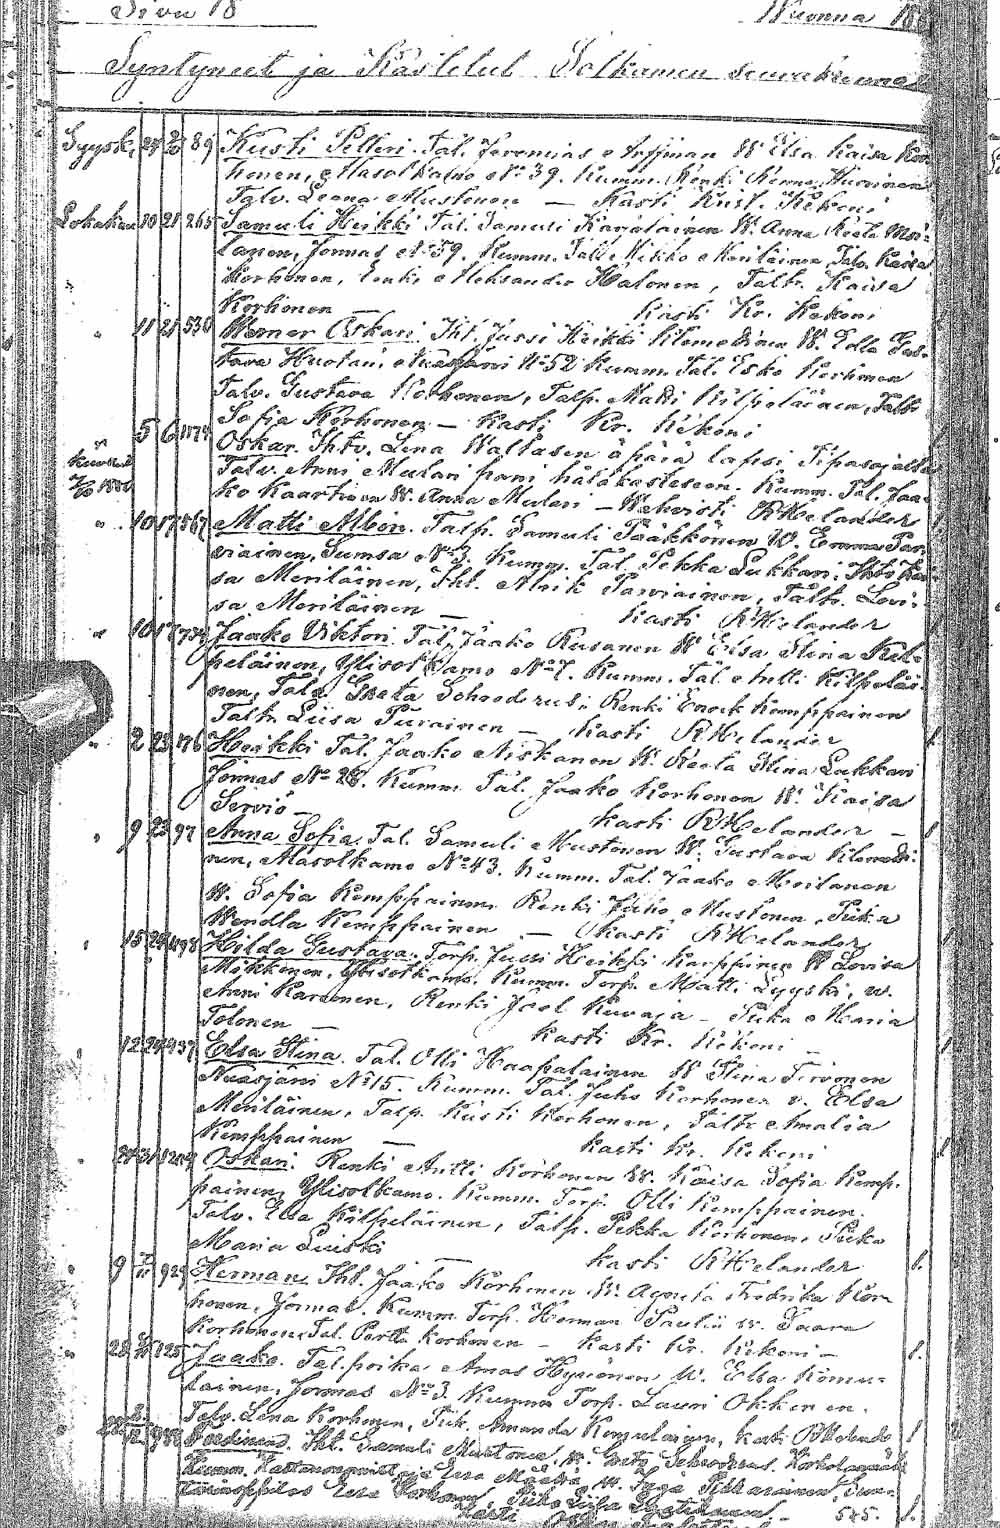 Sivu 18 Wuonna 18
Syntyneet ja Kastetut Sotkamon seurakunnassa
Syysk. 24 89 Kusti Pelleri. Tal. Jeremias W Elsa Kaisa Kor-
honen, No 39. Kumm. Renki
Talv. Leena Mustonen — Kasti Kr. Kekoni
Lokakuu 10 21 265 Samuli Heikki Tal. Samuli Karjalainen W. Anna Reeta Moi-
lanen, Jormas No 59. Kumm. Tal. Mikko Meriläinen, Talv. Kaisa
Korhonen, Renki Aleksander Halonen, Taltr. Kaisa
Korhonen Kasti Kr. Kekoni
" 11 21 530 Werner Oskari Iht. Jussi Heikki Klemettinen W. Edla Gus-
tava Huotari, Nuasjärvi No 52 Kumm. Tal. Esko Korhonen
Talv. Gustava Korhonen, Talp. Matti Kilpeläinen, Taltr.
Sofia Korhonen — Kasti Kr. Kekoni
5 6 1174 Oskar. Ihtv. Lena Waltasen äpärä lapsi, Tipasojalta
Talv. Anni Mulari pani hätäkasteseen. Kumm. Tal. Jaa-
ko Kaartinen W. Anna Mulari — Wahvisti RHelander
" 10 17 567 Matti Albin. Talp. Samuli Pääkkönen W. Emma Par-
viainen, Sumsa No 3. Kumm. Tal. Pekka Lukkari, Ihtv. Kai-
sa Meriläinen, Iht. Alrik Parviainen, Taltr. Lovi-
sa Meriläinen — Kasti RHelander
" 10 17 734 Jaako Viktori. Tal. Jaako Rusanen W Elsa Stina Kil-
peläinen, Ylisotkamo No 7. Kumm. Tal. Antti Kilpeläi-
nen, Talv. Greta Schroderus, Renki Enock Kemppainen
Taltr. Liisa Purainen — Kasti RHelander
" 2 23 176 Heikki Tal. Jaako Niskanen W. Reeta Stina Lukkari
Jormas No 28. Kumm. Tal. Jaako Korhonen W. Kaisa
Serviö — Kasti RHelander —
" 9 23 97 Anna Sofia. Tal. Samuli Mustonen W. Gustava Klemetti-
nen, Alasotkamo No 43. Kumm. Tal. Jaako Moilanen
W. Sofia Kemppainen. Renki Juho Mustonen, Piika
Wendla Kemppainen — Kasti RHelander
" 15 24 498 Hilda Gustava. Torp. Jussi Heikki Karppinen W Lovisa
Mökkönen, Ylisotkamo. Kumm. Torp. Matti Lyyski, w.
Anni Karvonen, Renki Joel Kuvaja — Piika Maria
Tolonen — Kasti Kr. Kekoni —
" 12 24 437 Elsa Stina. Tal. Olli Haapalainen W Stina Tirronen
Nuasjärvi No 15. Kumm. Tal. Juho Korhonen v. Elsa
Meriläinen, Talp. Kusti Korhonen, Taltr. Amalia
Kemppainen — Kasti Kr. Kekoni
" 24 31 Oskari. Renki Antti Korhonen W. Kaisa Sofia Kemp-
painen, Ylisotkamo. Kumm. Torp. Olli Kemppainen.
Talv. Elsa Kilpeläinen, Talp. Pekka Korhonen, Piika
Maria Luiski — Kasti RHelander
" 9 929 Herman. Iht. Jaako Korhonen W. Agneta Fredrika Kor-
honen, Jormas. Kumm. Torp. Herman Paulii w. Saara
Korhonen, Tal. Pertti Korhonen — Kasti Kr. Kekoni —
" 22 125 Jaako. Tal. poika Amas Hyvönen W. Elba Komu-
lainen, Jormas No 3. Kumm. Torp. Lauri Okkonen.
Talv. Lena Korhonen, Piik. Amanda Komulainen, Kasti RHelander
Ferdinand. Iht. Samuli Mustonen, w. Greta Schroderus.
Kumm. w. Pikkarainen,
Korhonen, Piika Liisa
Kasti 545.